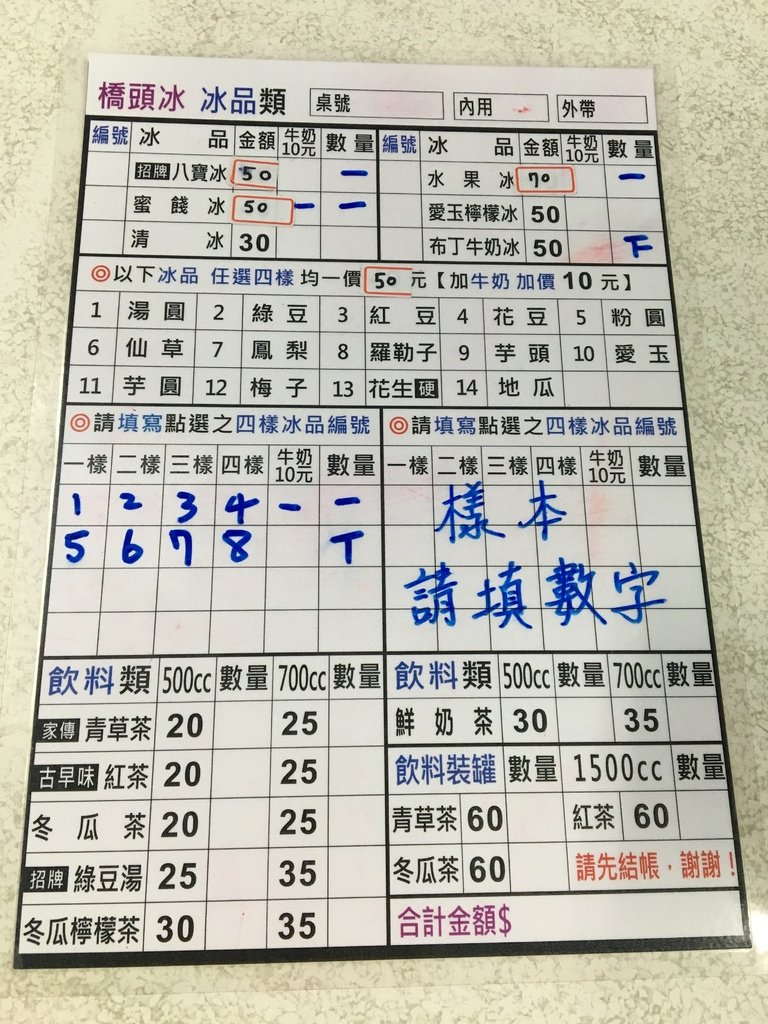 橋頭冰 冰品類 桌號 內用 外帶
編號 冰品 金額 牛奶10元 數量 編號 冰品 金額 牛奶10元 數量
招牌 八寶冰 50 一 水果冰 70 一
蜜餞冰 50 一 一 愛玉檸檬冰 50
清冰 30 布丁牛奶冰 50 下
◎以下冰品 任選四樣 均一價 50 元【加牛奶 加價 10 元】
1 湯圓 2 綠豆 3 紅豆 4 花豆 5 粉圓
6 仙草 7 鳳梨 8 羅勒子 9 芋頭 10 愛玉
11 芋圓 12 梅子 13 花生硬 14 地瓜
◎請填寫點選之四樣冰品編號 ◎請填寫點選之四樣冰品編號
一樣 二樣 三樣 四樣 牛奶10元 數量 一樣 二樣 三樣 四樣 牛奶10元 數量
1 2 3 4 一 一 樣本
5 6 7 8 T
請填數字
飲料類 500cc 數量 700cc 數量 飲料類 500cc 數量 700cc 數量
家傳 青草茶 20 25 鮮奶茶 30 35
古早味 紅茶 20 25 飲料裝罐 數量 1500cc 數量
冬瓜茶 20 25 青草茶 60 紅茶 60
招牌 綠豆湯 25 35 冬瓜茶 60 請先結帳，謝謝！
冬瓜檸檬茶 30 35 合計金額$